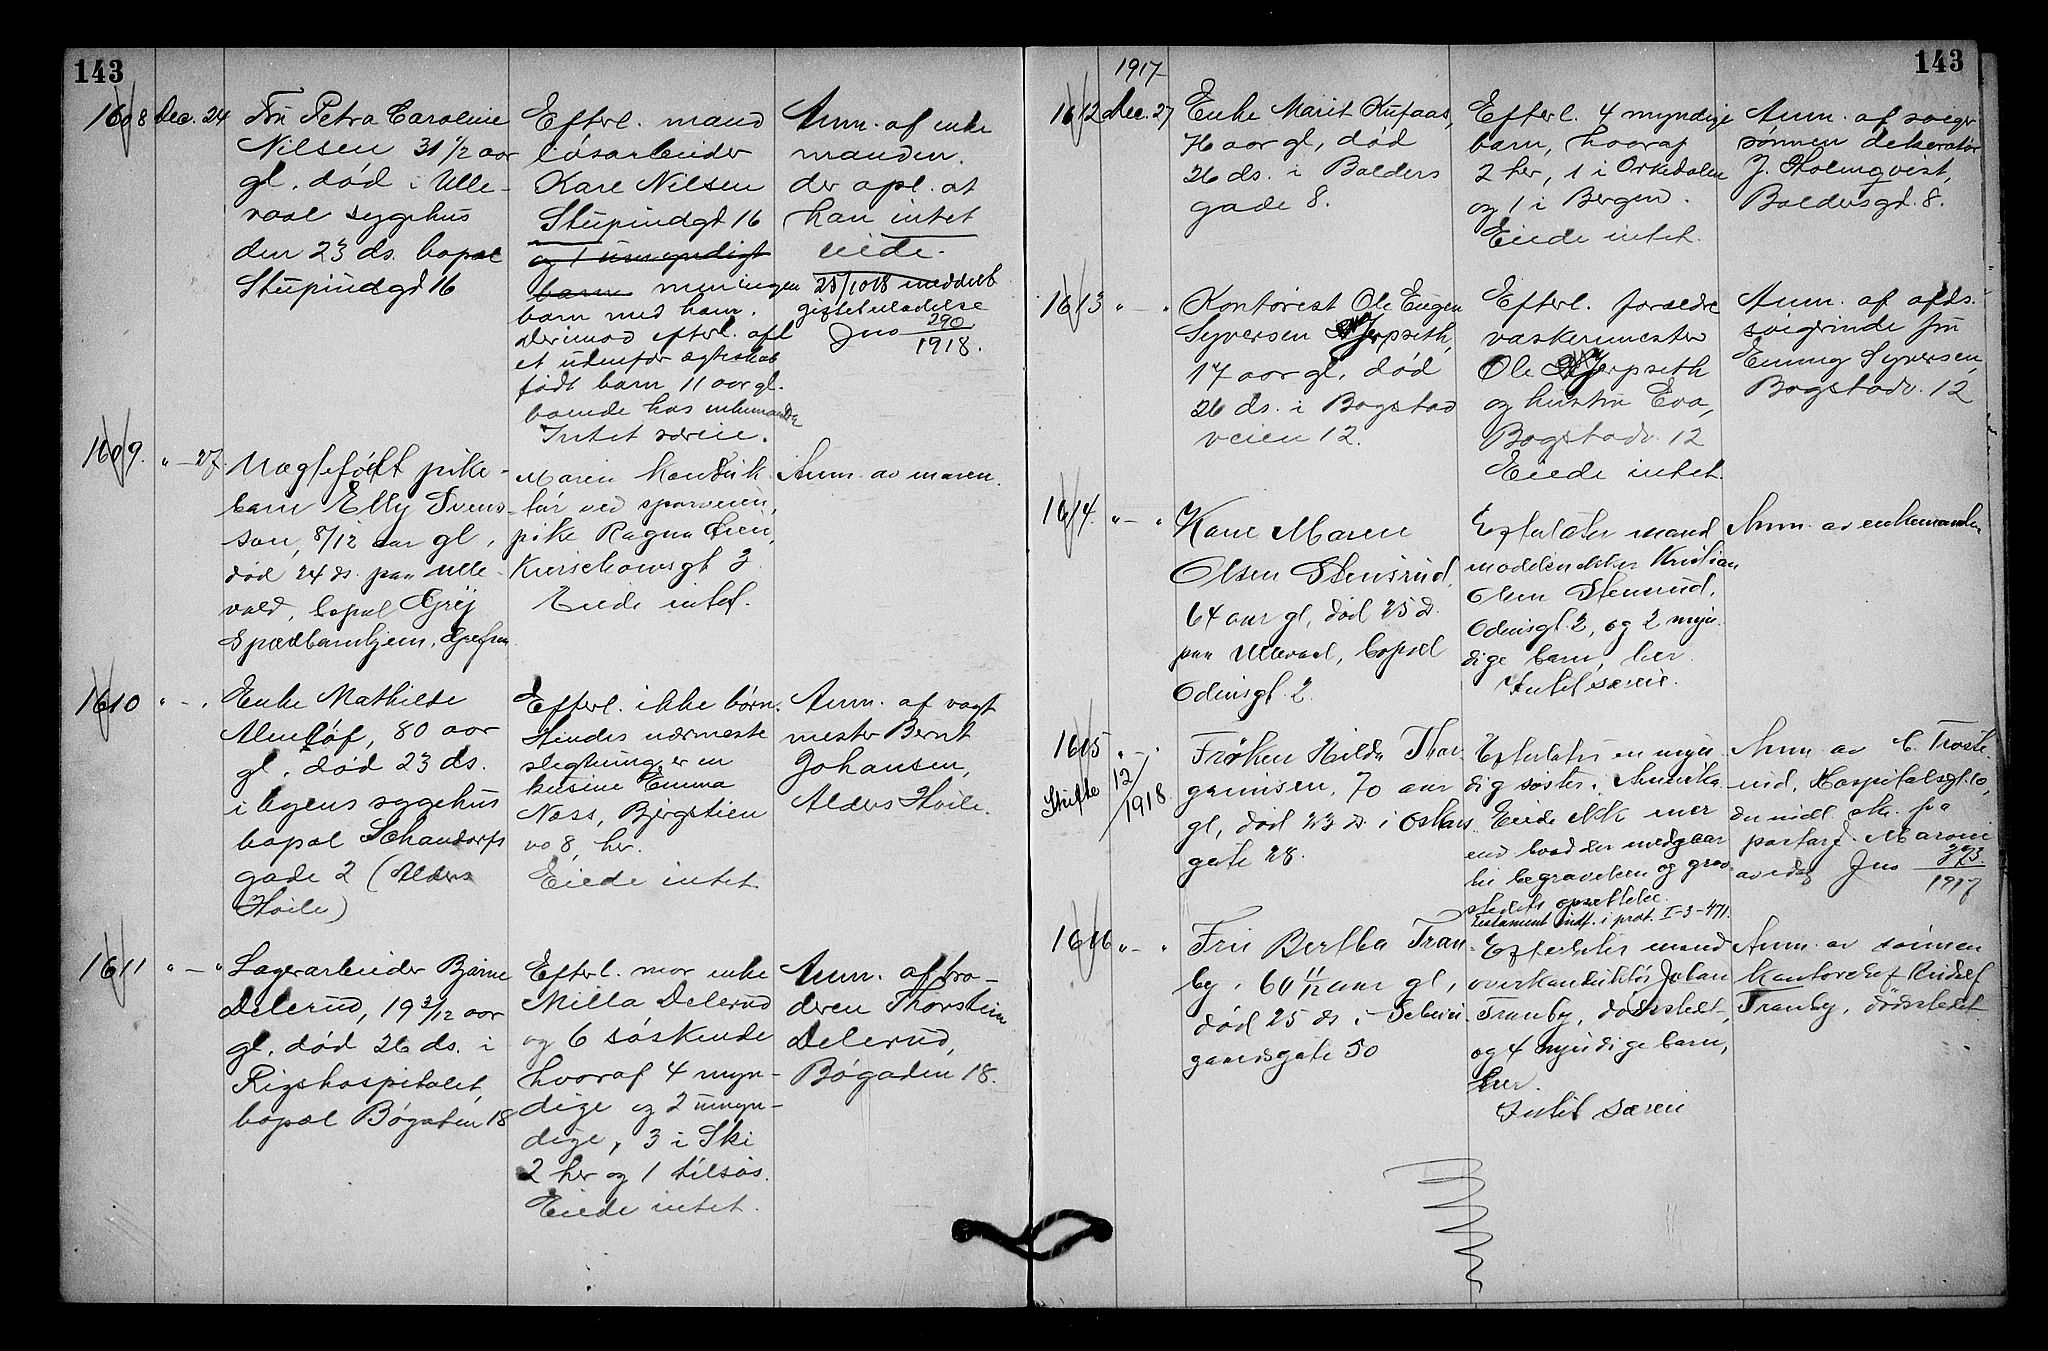 143
1608 Dec. 24 Fru Petra Caroline
Nilsen 31 1/2 aar
gl. død i Ulle-
vaal sygehus
den 23 ds. bopæl
Stupindgd 16
Efterl. mand
løsarbeider
Kare Nilsen
Stupindgd 16
og 1 umyndigt
barn men ingen
barn med ham.
Derimod efterl. afd
et udenfor ægteskab
født barn 11 aar gl.
boende hos enkemanden
Intet særeie.
Anm. af enke
manden.
der opl. at
han intet
eiede.
25/10 18 meddelt
giftetilladelse
Jno 290
1918.
1609. " — 27. Uægtefødt pike-
barn Elly Svens-
son, 8/12 aar gl,
død 24 ds. paa Ulle-
vold, bopæl
Spædbarnhjem, Grefsen
Moren konduk-
tør ved sporveien,
pike Ragna Lien,
Kierschowsgt 3
Eiede intet.
Anm. av moren.
1610 " — " Enke Mathilde
Almløf, 80 aar
gl. død 23 ds.
i byens sygehus
bopæl Schandorfs
gade 2 (Alders
Hvile)
Efterl. ikke børn.
Hendes nærmeste
slegtning er en
kusine Emma
Næss, Bjergstien
no 8, her.
Eiede intet
Anm. af vagt
mester Bernt
Johansen,
Alders Hvile.
1611 " — " Lagerarbeider Bjarne
Delerud, 19 3/12 aar
gl. død 26 ds. i
Rigshospitalet,
bopæl Bøgaten 18
Efterl. mor enke
Milla Delerud
og 6 søskende
hvoraf 4 myn-
dige og 2 umyn-
dige, 3 i Ski
2 her og 1 tilsøs.
Eiede intet.
Anm. af bro-
deren Thorstein
Delerud,
Bøgaden 18.
143
1917
1612 Dec. 27 Enke Marit Kufaas,
76 aar gl, død
26 ds. i Balders
gade 8.
Efterl. 4 myndige
barn, hvoraf
2 her, 1 i Orkedalen
og 1 i Bergen.
Eiede intet.
Anm. af svoger
sønnen dekoratør
J. Holmqvist,
Boldersgd. 8.
1613 " — " Kontorist Ole Eugen
Syversen
17 aar gl, død
26 ds. i Bogstad
veien 12.
Efterl. forældre
vaskemester
Ole
og hustru Eva,
Bogstadv. 12
Eiede intet.
Anm. af afds.
svigerinde fru
Emmy Syversen,
Bogstadv. 12
1614. " — " Kone Maren
Olsen Stensrud,
64 aar gl, død 25 ds.
paa Ullevaal, bopæl
Odinsgt. 2
Efterlater mand
modelsnekker Kristian
Olsen Stensrud,
Odinsgt. 2, og 2 myn-
dige barn, her.
Intet særeie.
Anm. av enkemanden
1615 " — "
Skifte 12/1918
Frøken Hilda Thor-
grimsen, 70 aar
gl, død 23 ds i Oskars
gate 28.
Efterlater en myn-
dig søster i Amerika.
Eiede ikke mer
end hvad der medgaar
til begravelsen og grav-
stedets opsettelse.
Testament indf. i prot. I-3-471.
Anm. av C. Troste-
rud, Hospitalsgt. 10,
der indl. skr. fra
pastor J. Maroni
av idag Jno 373
1917
1616 " — " Fru Bertha Tran-
by, 60 11/12 aar gl,
død 25 ds i Schwei-
gaardsgate 50
Efterlater mand
overkonduktør Johan
Tranby, dødsstedet,
og 4 myndige barn,
her.
Intet særeie
Anm. av sønnen
kontorchef Rudolf
Tranby, dødsstedet